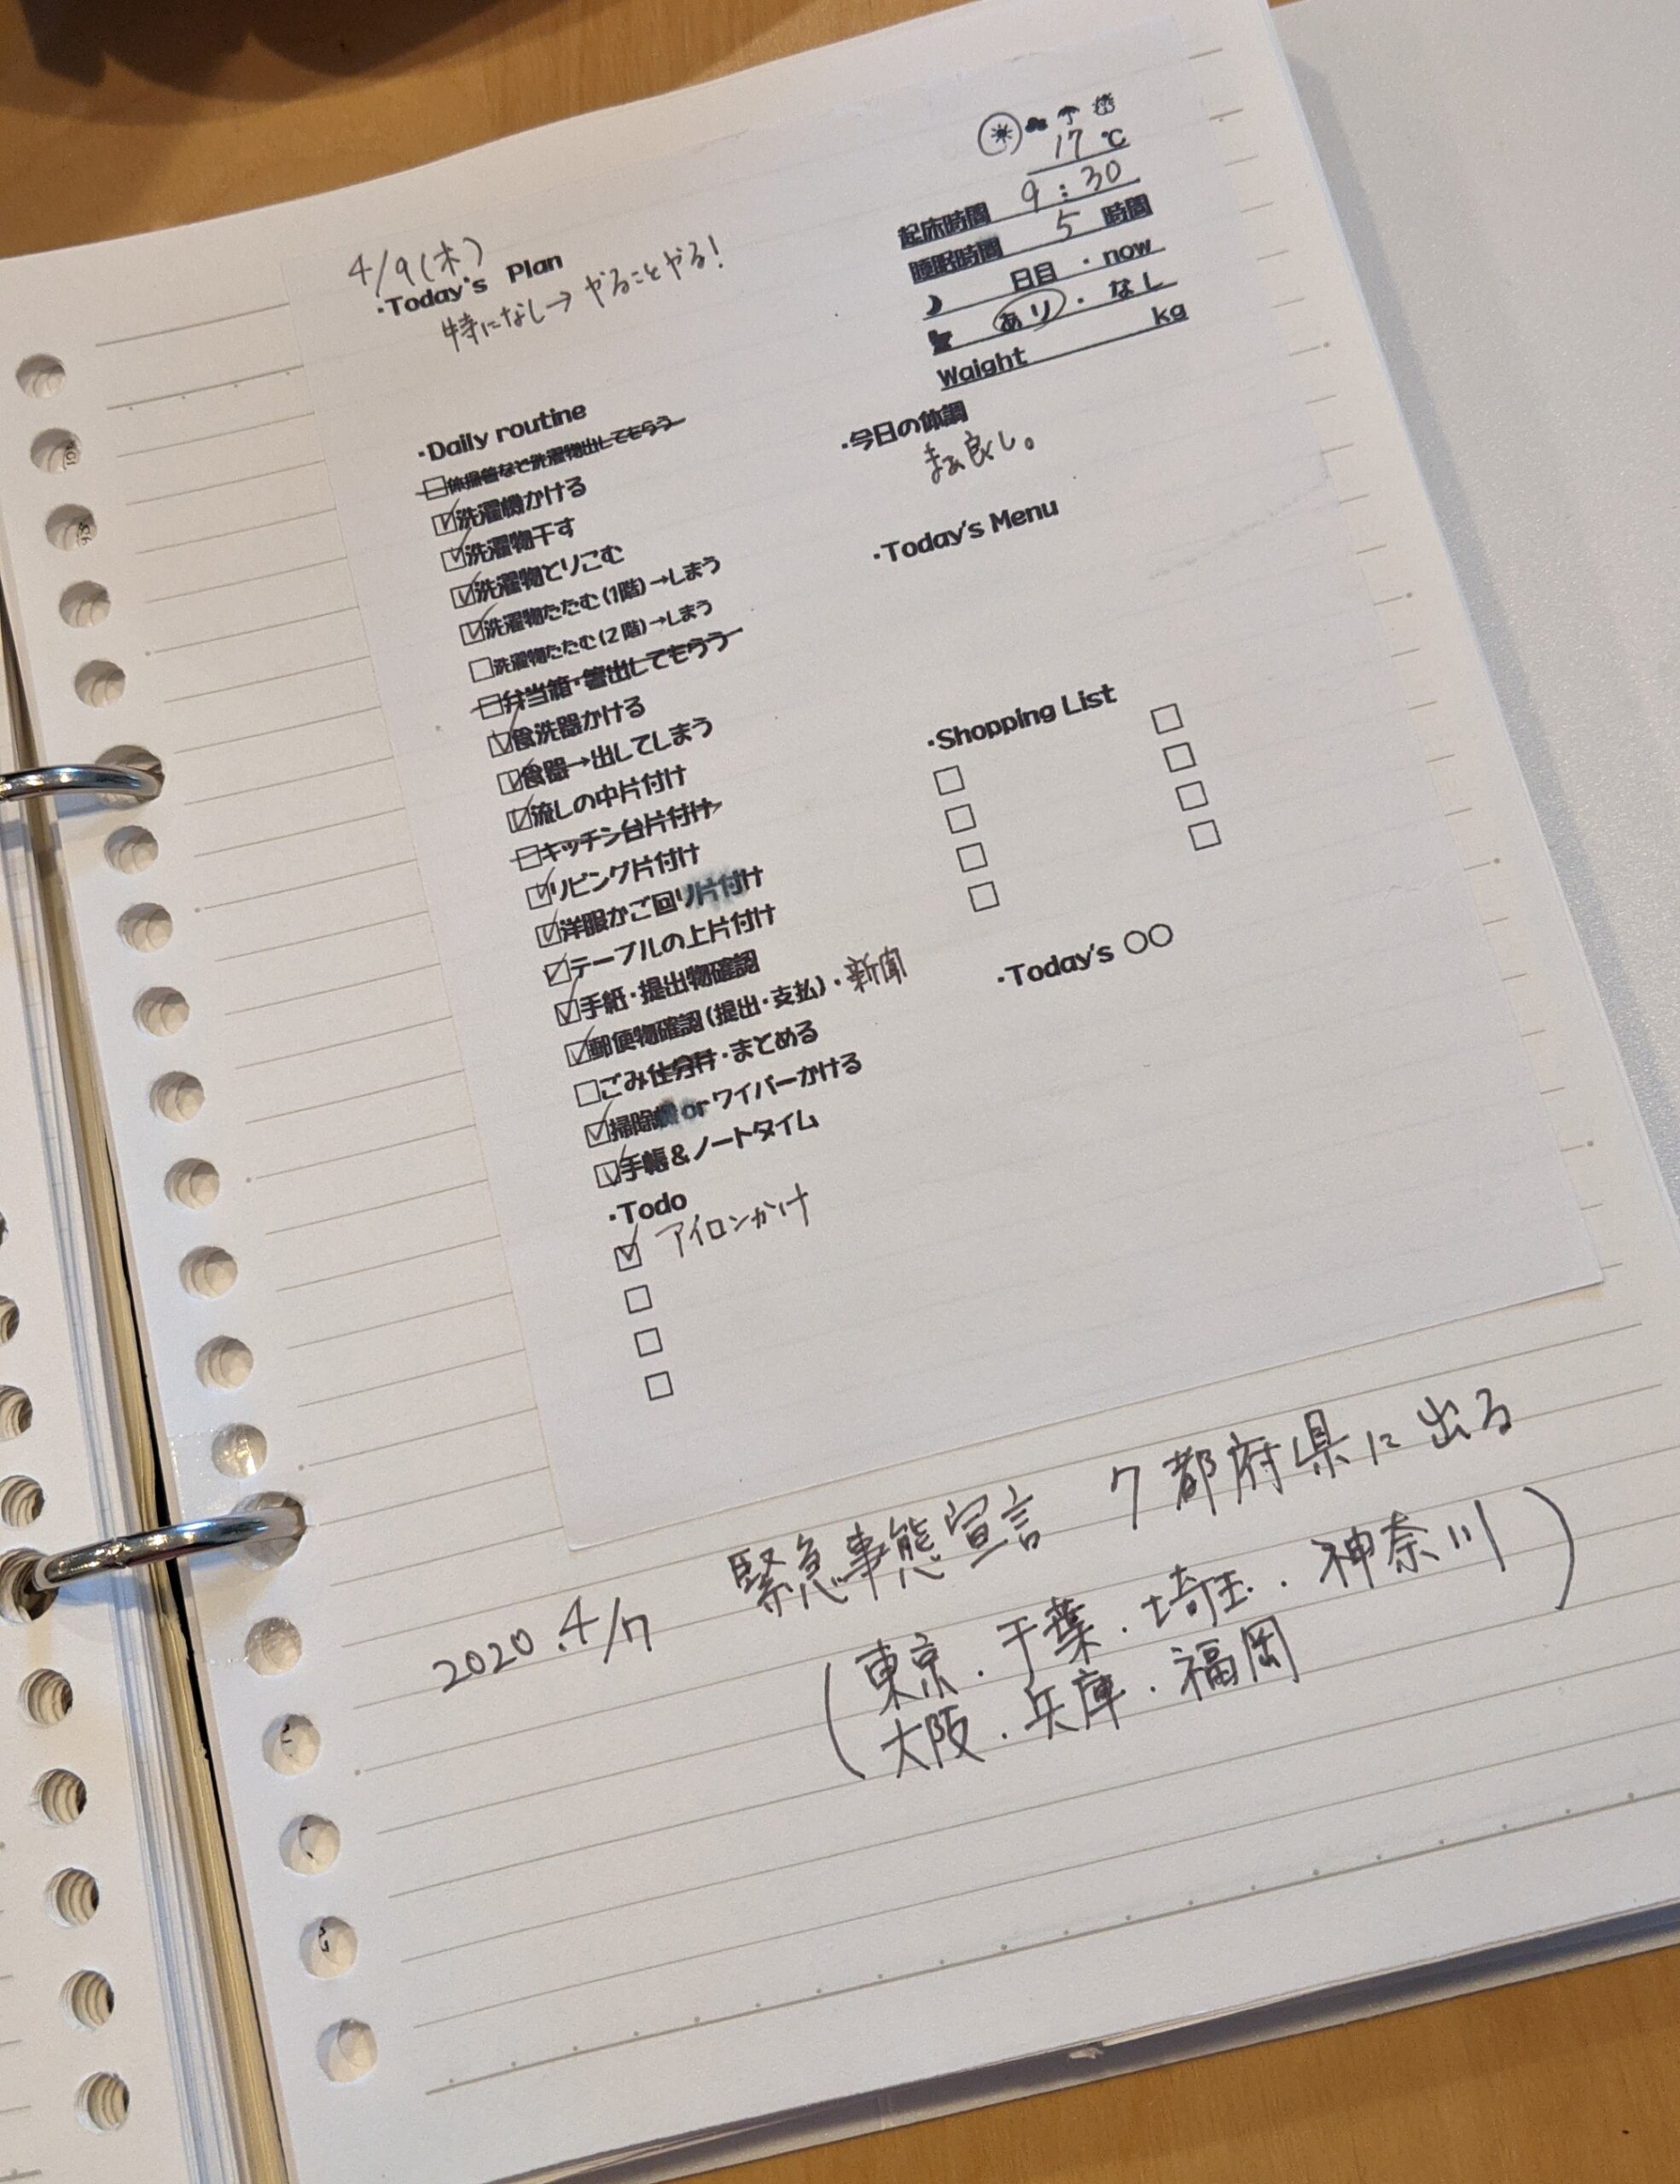 4/9(木)
・Today's Plan
特になし→ やることやる!
17 ℃
起床時間 9:30
睡眠時間 5 時間
日目 ・now
あり・なし
Waight kg
・Daily routine
□体操着など洗濯物出してもらう
☑洗濯機かける
☑洗濯物干す
☑洗濯物とりこむ
☑洗濯物たたむ(1階)→しまう
□洗濯物たたむ(2階)→しまう
□弁当箱・箸出してもらう
☑食洗器かける
☑食器→出してしまう
☑流しの中片付け
□キッチン台片付け
☑リビング片付け
☑洋服かご回り片付け
☑テーブルの上片付け
☑手紙・提出物確認
☑郵便物確認(提出・支払)・新聞
□ごみ仕分け・まとめる
☑掃除機orワイパーかける
☑手帳&ノートタイム
・Todo
☑ アイロンかけ
□
□
□
・今日の体調
まあ良し。
・Today's Menu
・Shopping List
□ □
□ □
□ □
□ □
・Today's ○○
2020.4/7 緊急事態宣言 7都府県に出る
(東京.千葉.埼玉.神奈川
大阪.兵庫.福岡)